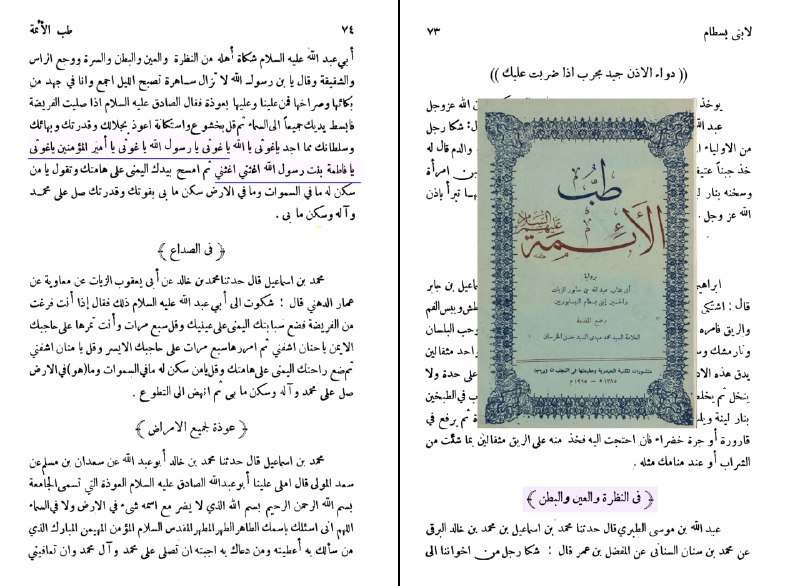 لابنى بسطام
٧٣
(( دواء الاذن جيد مجرب اذا ضربت عليك ))
يوخذ
ن الله عزوجل
عبد الله
قال: شكا رجل
من الاولياء
والدم قال له
خذ جبناً عتيقاً
ن امرأة
وسخنه بنار ل
ها تبرأ باذن
الله عز وجل .
طب
الأئمة
عليهم السلام
برواية
أبي عتاب عبد الله بن سابور الزيات
والحسين إبني بسطام النيسابوريين
وضع المقدمة
العلامة السيد محمد مهدي السيد حسن الخرسان
منشورات المكتبة الحيدرية ومطبعتها في النجف
١٣٨٥ هـ - ١٩٦٥ م
ابراهيم
ماعيل بن جابر
قال: اشتكى
طش ويبس الفم
والريق فامره
وحب البلسان
ونارمشك وس
واحد مثقالين
يدق هذه الاد
على حدة ولا
ينخل ثم يخلط
ب في الطبخين
بنار لينة وبلم
ثم يرفع في
قارورة أو جرة خضراء فان احتجت اليه فخذ منه على الريق مثقالين بما شئت من
الشراب أو عند منامك مثله .
﴿ فى النظرة والعين والبطن ﴾
عبد الله بن موسى الطبري قال حدثنا محمد بن اسماعيل بن محمد بن خالد البرقى
عن محمد بن سنان السنانى عن المفضل بن عمر قال : شكا رجل من اخواننا الى
٧٤
طب الأئمة
أبي عبد الله عليه السلام شكاة أهله من النظرة والعين والبطن والسرة ووجع الراس
والشقيقة وقال يا بن رسول الله لا تزال ساهرة تصبح الليل اجمع وانا في جهد من
بكائها وصراخها فمن علينا وعليها بعوذة فقال الصادق عليه السلام اذا صليت الفريضة
فابسط يديك جميعاً الى السماء ثم قل بخشوع واستكانة اعوذ بجلالك وقدرتك وبهائك
وسلطانك مما اجد ياغوثى يا الله ياغوثى يا رسول الله يا غوثى يا أمير المؤمنين ياغوثى
يا فاطمة بنت رسول الله اغثنى اغثنى ثم امسح بيدك اليمنى على هامتك وتقول يا من
سكن له ما في السموات وما في الارض سكن ما بى بقوتك وقدرتك صل على محمد
وآله وسكن ما بى .
﴿ فى الصداع ﴾
محمد بن اسماعيل قال حدثنا محمد بن خالد عن أبى يعقوب الزيات عن معاوية عن
عمار الدهني قال : شكوت الى أبي عبد الله عليه السلام ذلك فقال إذا أنت فرغت
من الفريضة فضع سبابتك اليمنى على عينيك وقل سبع مرات وأنت تمرها على حاجبك
الايمن ياحنان اشفني ثم امررها سبع مرات على حاجبك الايسر وقل يا منان اشفني
ثم ضع راحتك اليمنى على هامتك وقل يامن سكن له مافي السموات وما(هو)في الارض
صل على محمد وآله وسكن ما بى ثم انهض الى التطوع .
﴿ عوذة لجميع الامراض ﴾
محمد بن اسماعيل قال حدثنا محمد بن خالد أبو عبد الله عن سعدان بن مسلم عن
سعد المولى قال املى علينا أبوعبدالله الصادق عليه السلام العوذة التي تسمى الجامعة
بسم الله الرحمن الرحيم بسم الله الذي لا يضر مع اسمه شىء في الارض ولا في السماء
اللهم انى اسئلك باسمك الطاهر الطهر المطهر المقدس السلام المؤمن المهيمن المبارك الذي
من سألك به أعطيته ومن دعاك به اجبته ان تصلى على محمد وآل محمد وان تعافيتي